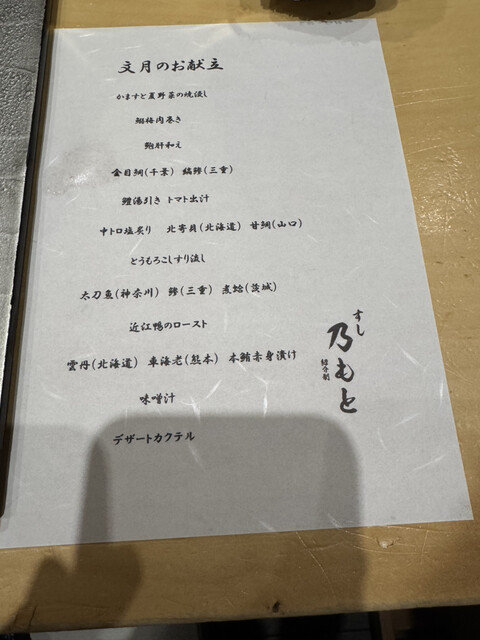 文月のお献立
かますと夏野菜の焼浸し
鰯梅肉巻き
鮑肝和え
金目鯛(千葉) 縞鯵(三重)
鱧湯引き トマト出汁
中トロ塩炙り 北寄貝(北海道) 甘鯛(山口)
とうもろこしすり流し
太刀魚(神奈川) 鯵(三重) 煮蛤(茨城)
近江鴨のロースト
雲丹(北海道) 車海老(熊本) 本鮪赤身漬け
味噌汁
デザートカクテル
すし
乃もと
紹介制